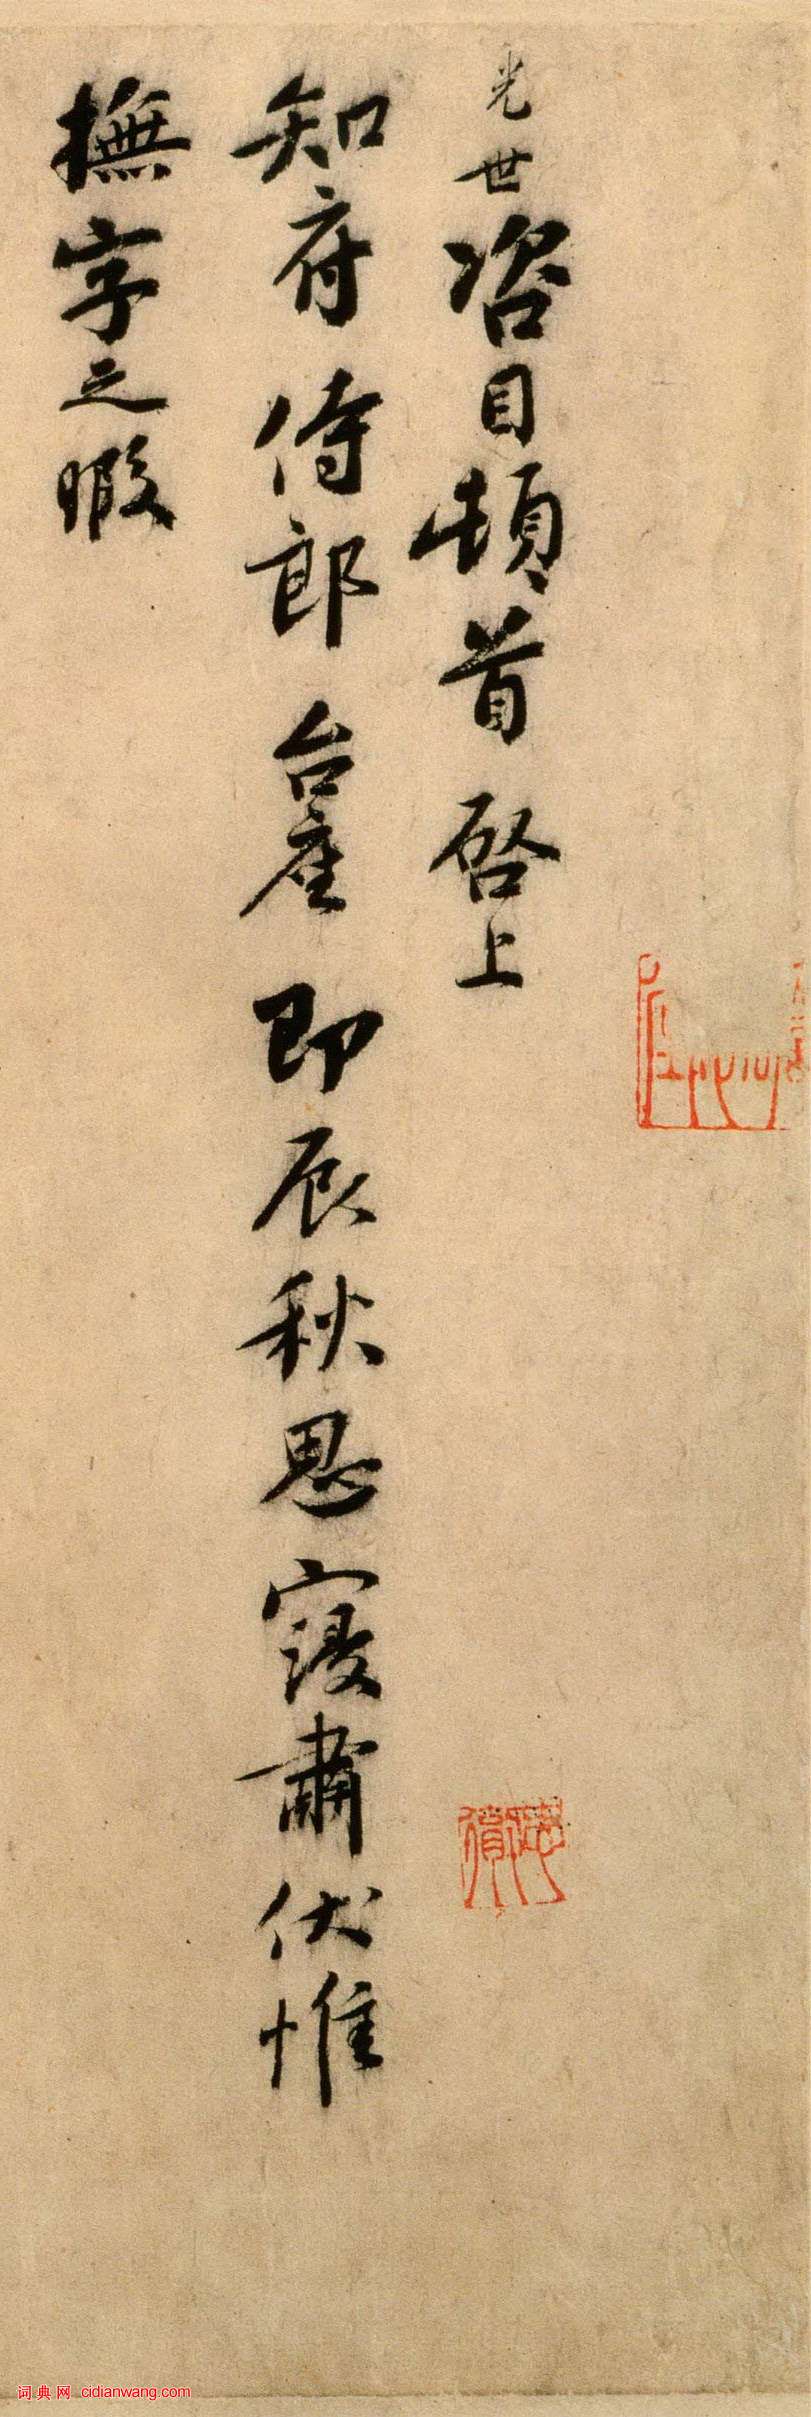 光世咨目頓首啓上
知府侍郎台座即辰秋思寢肅伏惟
撫字之暇
词典网 cidianwang.com